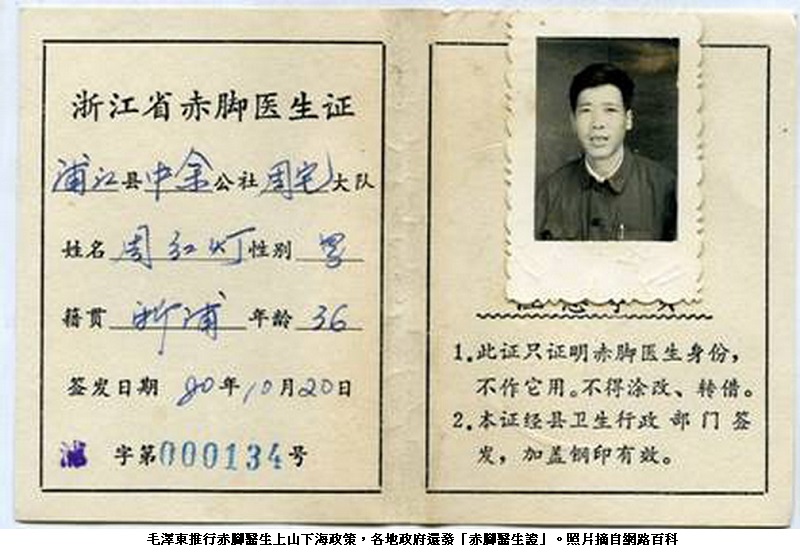 浙江省赤脚医生证
浦江县中余公社周宅大队
姓名 周红灯 性别 男
籍贯 浙浦 年龄 36
签发日期 80年10月20日
浦 字第000134号
1.此证只证明赤脚医生身份，
不作它用。不得涂改、转借。
2.本证经县卫生行政部门签
发，加盖钢印有效。
毛澤東推行赤腳醫生上山下海政策，各地政府還發「赤腳醫生證」。照片摘自網路百科